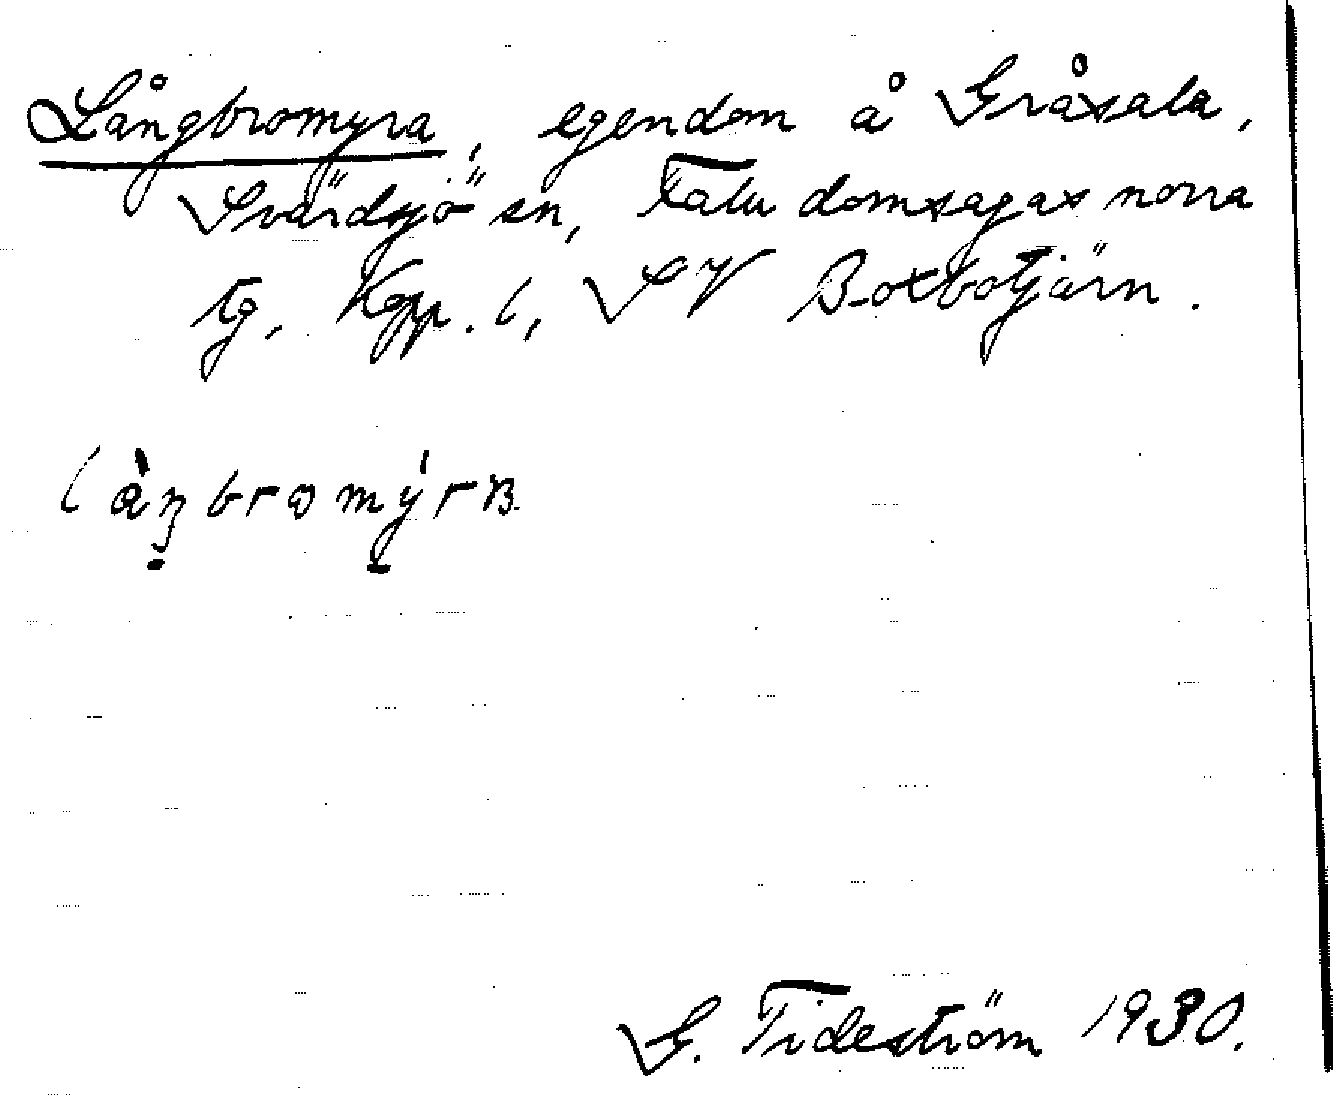 Långbromyra, egendom å Gråsala,
Svärdsjö sn, Falu domsagas norra
tg, Kpp. l, SV Boxbotjärn.
làŋbromýrʙ
G. Tideström 1930.